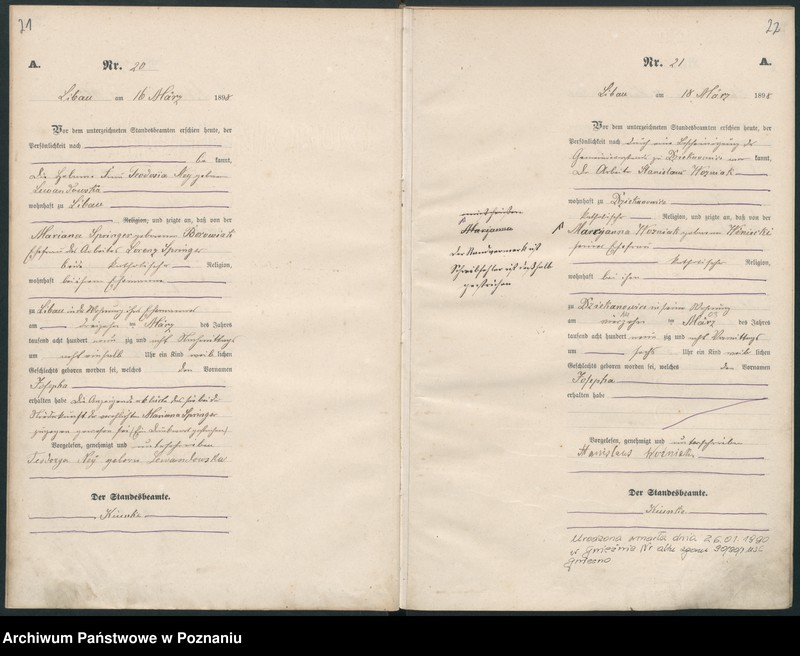 21
A. Nr. 20
Libau am 16 März 1898
Vor dem unterzeichneten Standesbeamten erschien heute, der
Persönlichkeit nach
be kannt,
geboren
Lewandowska
wohnhaft zu Libau
Religion, und zeigte an, daß von der
Mariana Springer geborenen Borowiak
Ehefrau des Arbeiter Lorenz Springer
beide katholischer Religion,
wohnhaft bei ihrem Ehemanne
zu Libau in der Wohnung ihres Ehemannes
am dreizehn ten März des Jahres
tausend acht hundert neun zig und acht Nachmittags
um acht einhalb Uhr ein Kind weib lichen
Geschlechts geboren worden sei, welches den Vornamen
Josepha
erhalten habe Die Anzeigende erklärte daß sie bei der
Niederkunft der verehelichte Mariana Springer
zugegen gewesen sei (Ein Druckwort gestrichen)
Vorgelesen, genehmigt und unterschrieben
geborn Lewandowska
Der Standesbeamte.
22
Nr. 21 A.
Libau am 18 März 1898
Vor dem unterzeichneten Standesbeamten erschien heute, der
Persönlichkeit nach durch eine Bescheinigung des
zu Dziekanowice kannt,
Der Arbeiter Stanislaus Wozniak
wohnhaft zu Dziekanowice
katholischer Religion, und zeigte an, daß von der
Maryanna Wozniak geborenen
seiner Ehefrau
katholischer Religion,
wohnhaft bei ihm
zu Dziekanowice in seiner Wohnung
am vierzehn ten März des Jahres
tausend acht hundert neun zig und acht Vormittags
um sechs Uhr ein Kind weib lichen
Geschlechts geboren worden sei, welches den Vornamen
Josepha
erhalten habe
Vorgelesen, genehmigt und unterschrieben
Stanislaus Wozniak
Der Standesbeamte.
Marjanna
Der Randvermerk ist
Schreibfehler ist deshalb
gestrichen
zmarła dnia 26.01.1990
w Gnieźnie Nr aktu zgonu 90/90/ USC
Gniezno
Archiwum Państwowe w Poznaniu